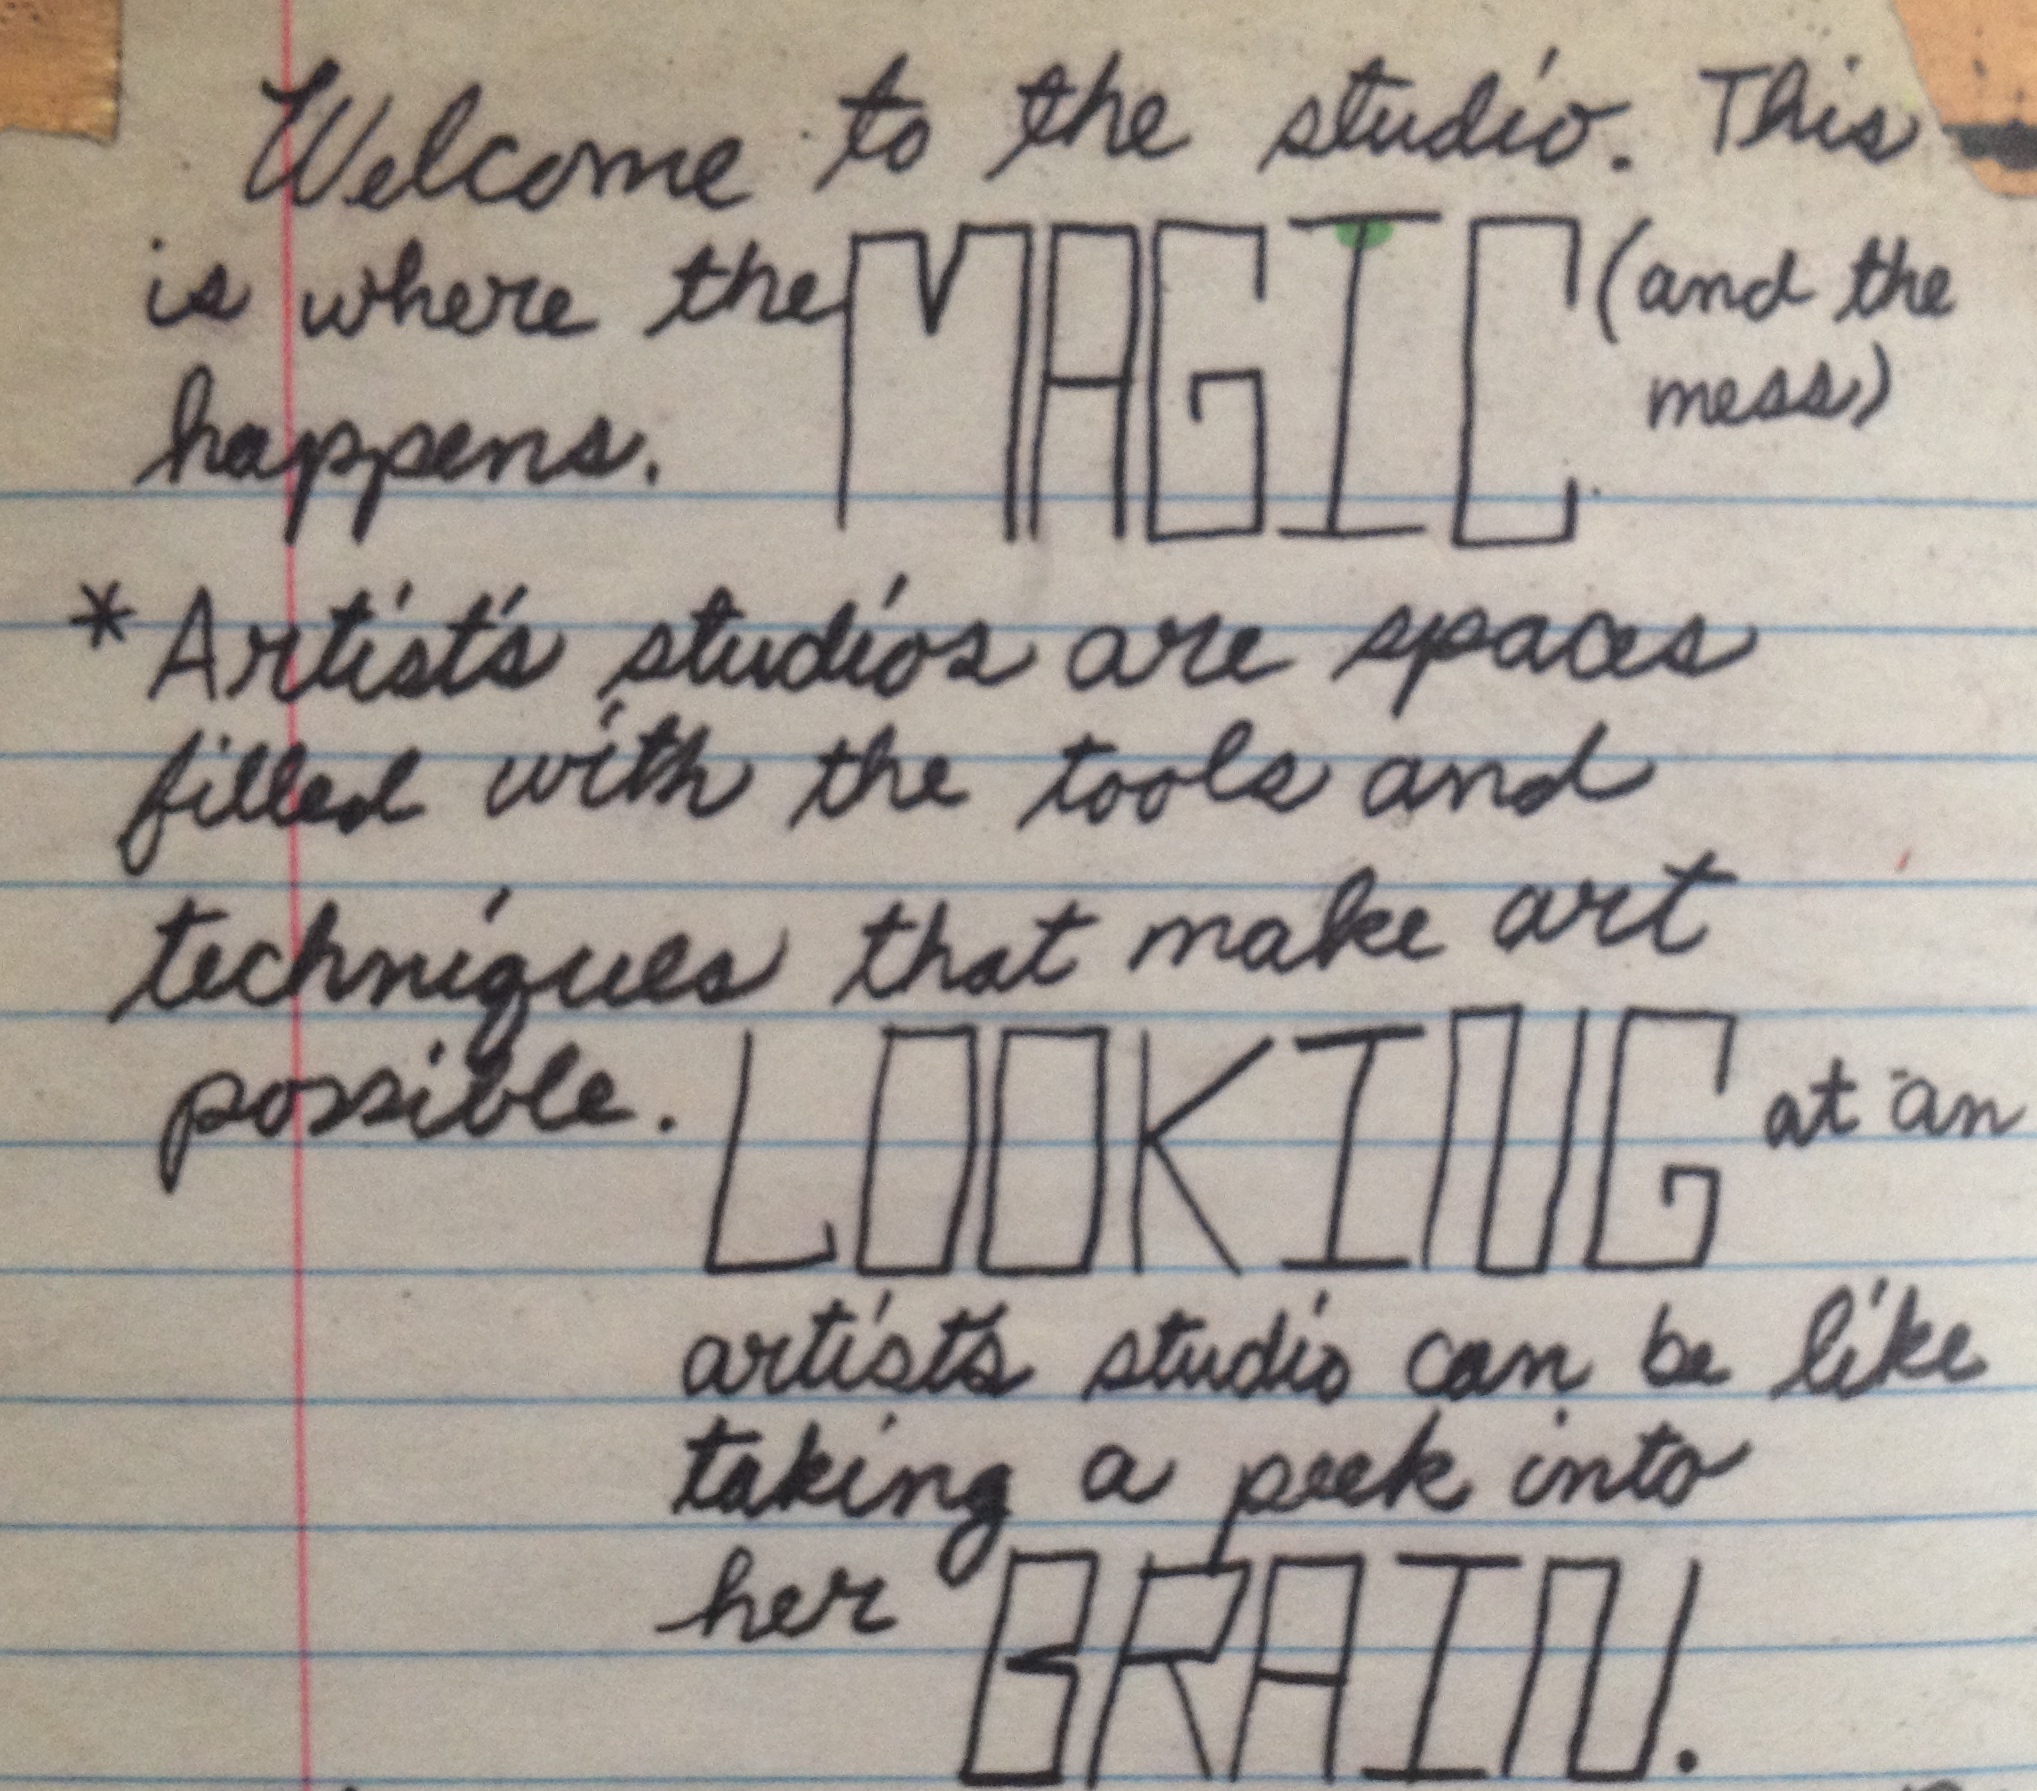 Welcome to the studio. This
is where the MAGIC (and the
mess)
happens.
*Artist's studios are spaces
filled with the tools and
techniques that make art
possible. LOOKING at an
artist's studio can be like
taking a peek into
her BRAIN.